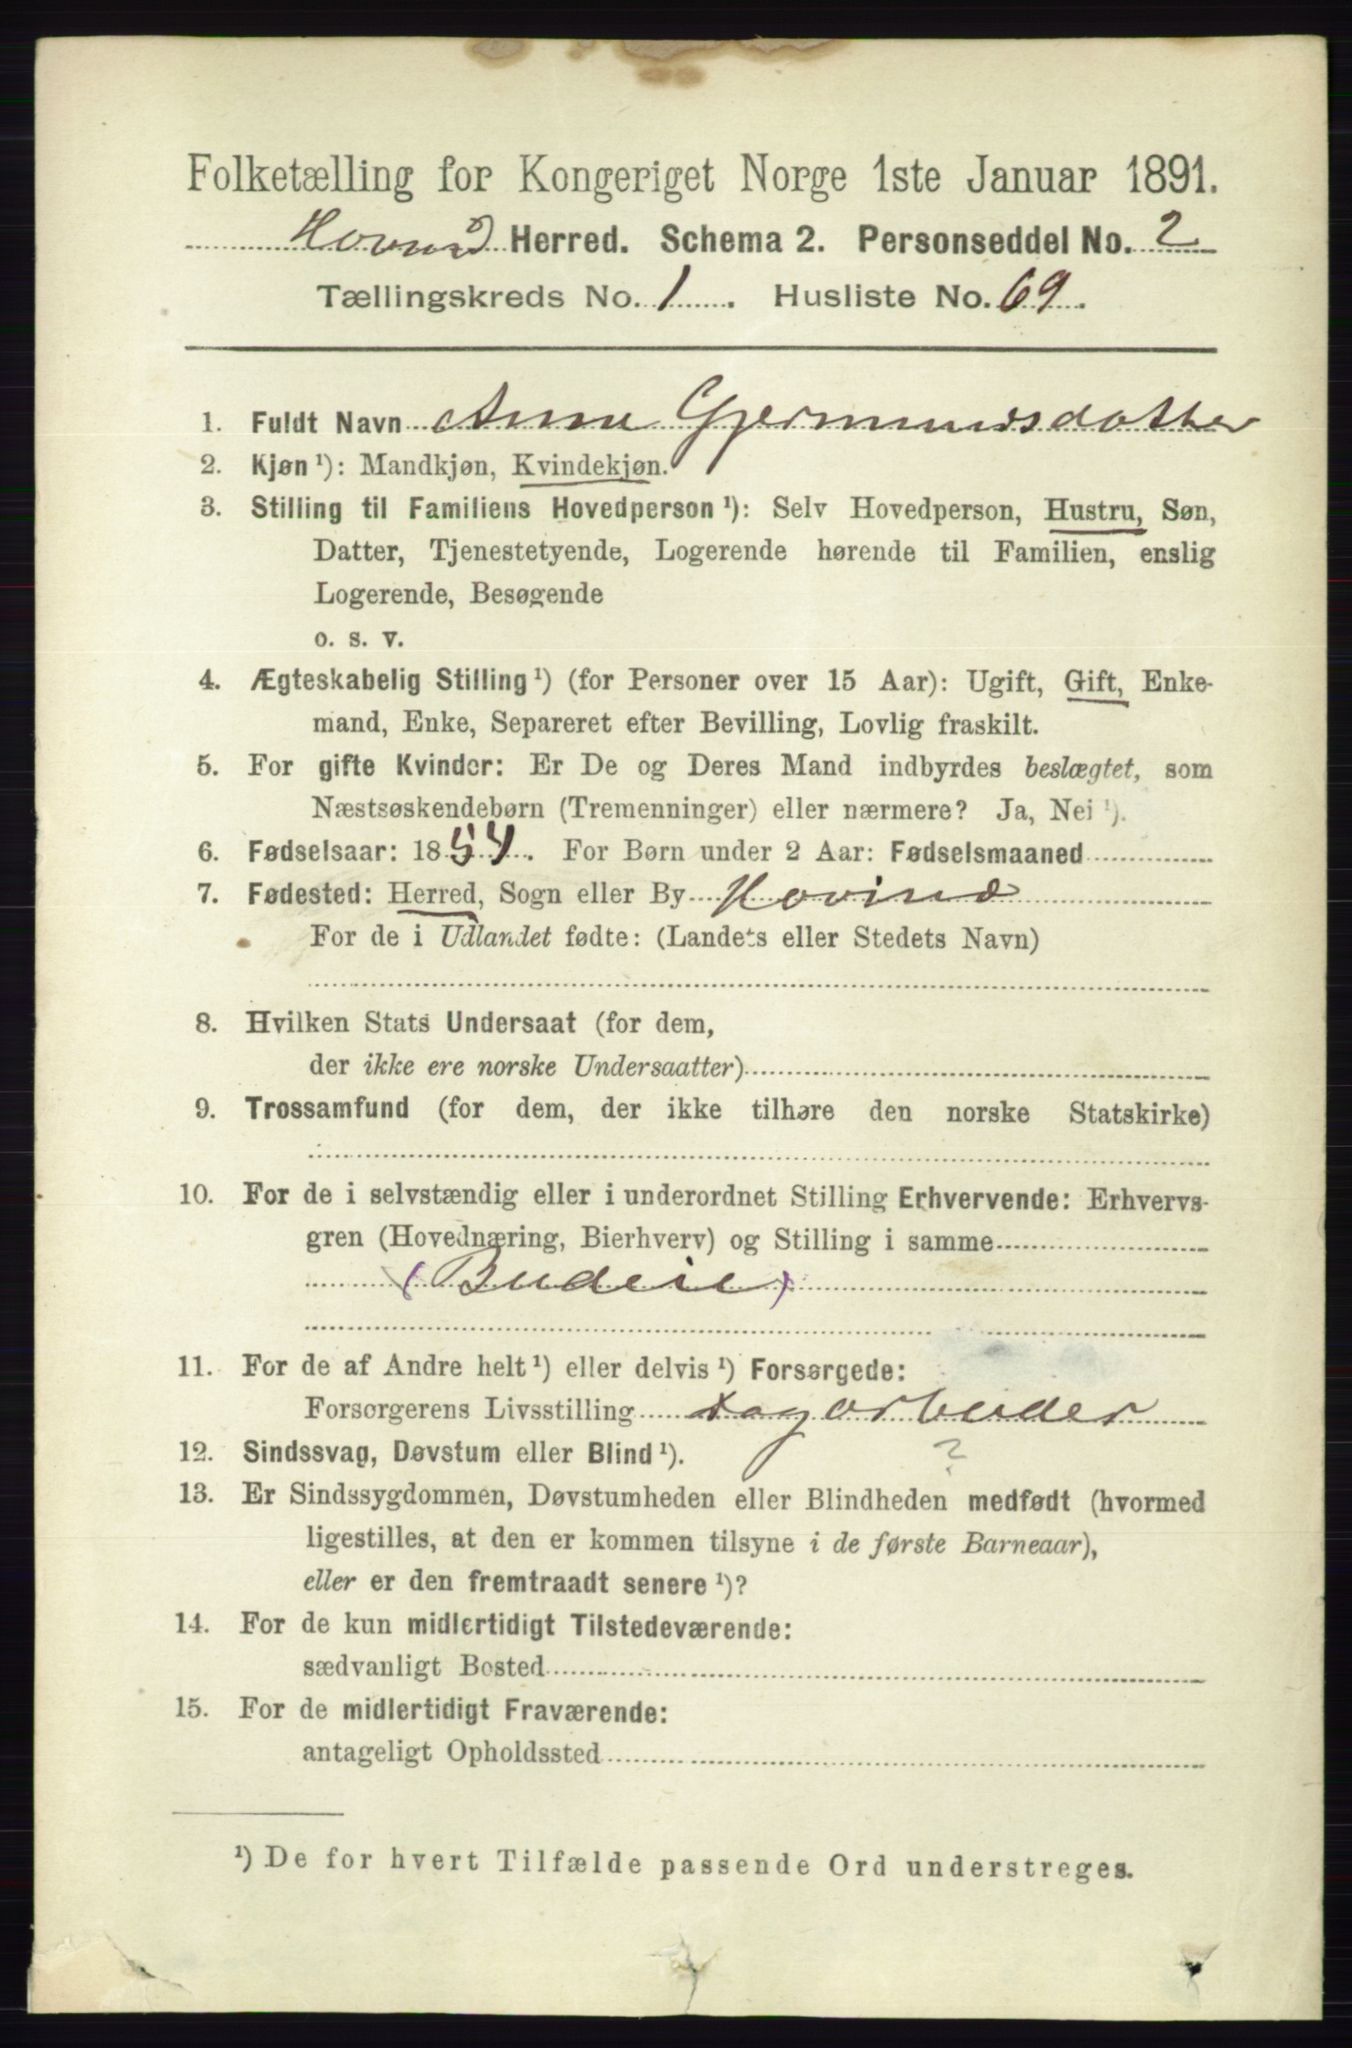 Folketælling for Kongeriget Norge 1ste Januar 1891.
Hovind Herred. Schema 2. Personseddel No. 2
Tællingskreds No. 1. Husliste No. 69.
1. Fuldt Navn Anne Gjermundsdatter
2. Kjøn ¹): Mandkjøn, Kvindekjøn.
3. Stilling til Familiens Hovedperson ¹): Selv Hovedperson, Hustru, Søn,
Datter, Tjenestetyende, Logerende hørende til Familien, enslig
Logerende, Besøgende
o. s. v.
4. Ægteskabelig Stilling ¹) (for Personer over 15 Aar): Ugift, Gift, Enke-
mand, Enke, Separeret efter Bevilling, Lovlig fraskilt.
5. For gifte Kvinder: Er De og Deres Mand indbyrdes beslægtet, som
Næstsøskendebørn (Tremenninger) eller nærmere? Ja, Nei ¹).
6. Fødselsaar: 1854. For Børn under 2 Aar: Fødselsmaaned
7. Fødested: Herred, Sogn eller By Hovind
For de i Udlandet fødte: (Landets eller Stedets Navn)
8. Hvilken Stats Undersaat (for dem,
der ikke ere norske Undersaatter)
9. Trossamfund (for dem, der ikke tilhøre den norske Statskirke)
10. For de i selvstændig eller i underordnet Stilling Erhvervende: Erhvervs-
gren (Hovednæring, Bierhverv) og Stilling i samme
(Budeie)
11. For de af Andre helt ¹) eller delvis ¹) Forsørgede:
Forsørgerens Livsstilling Dagarbeider
12. Sindssvag, Døvstum eller Blind ¹). ?
13. Er Sindssygdommen, Døvstumheden eller Blindheden medfødt (hvormed
ligestilles, at den er kommen tilsyne i de første Barneaar),
eller er den fremtraadt senere ¹)?
14. For de kun midlertidigt Tilstedeværende:
sædvanligt Bosted
15. For de midlertidigt Fraværende:
antageligt Opholdssted
¹) De for hvert Tilfælde passende Ord understreges.